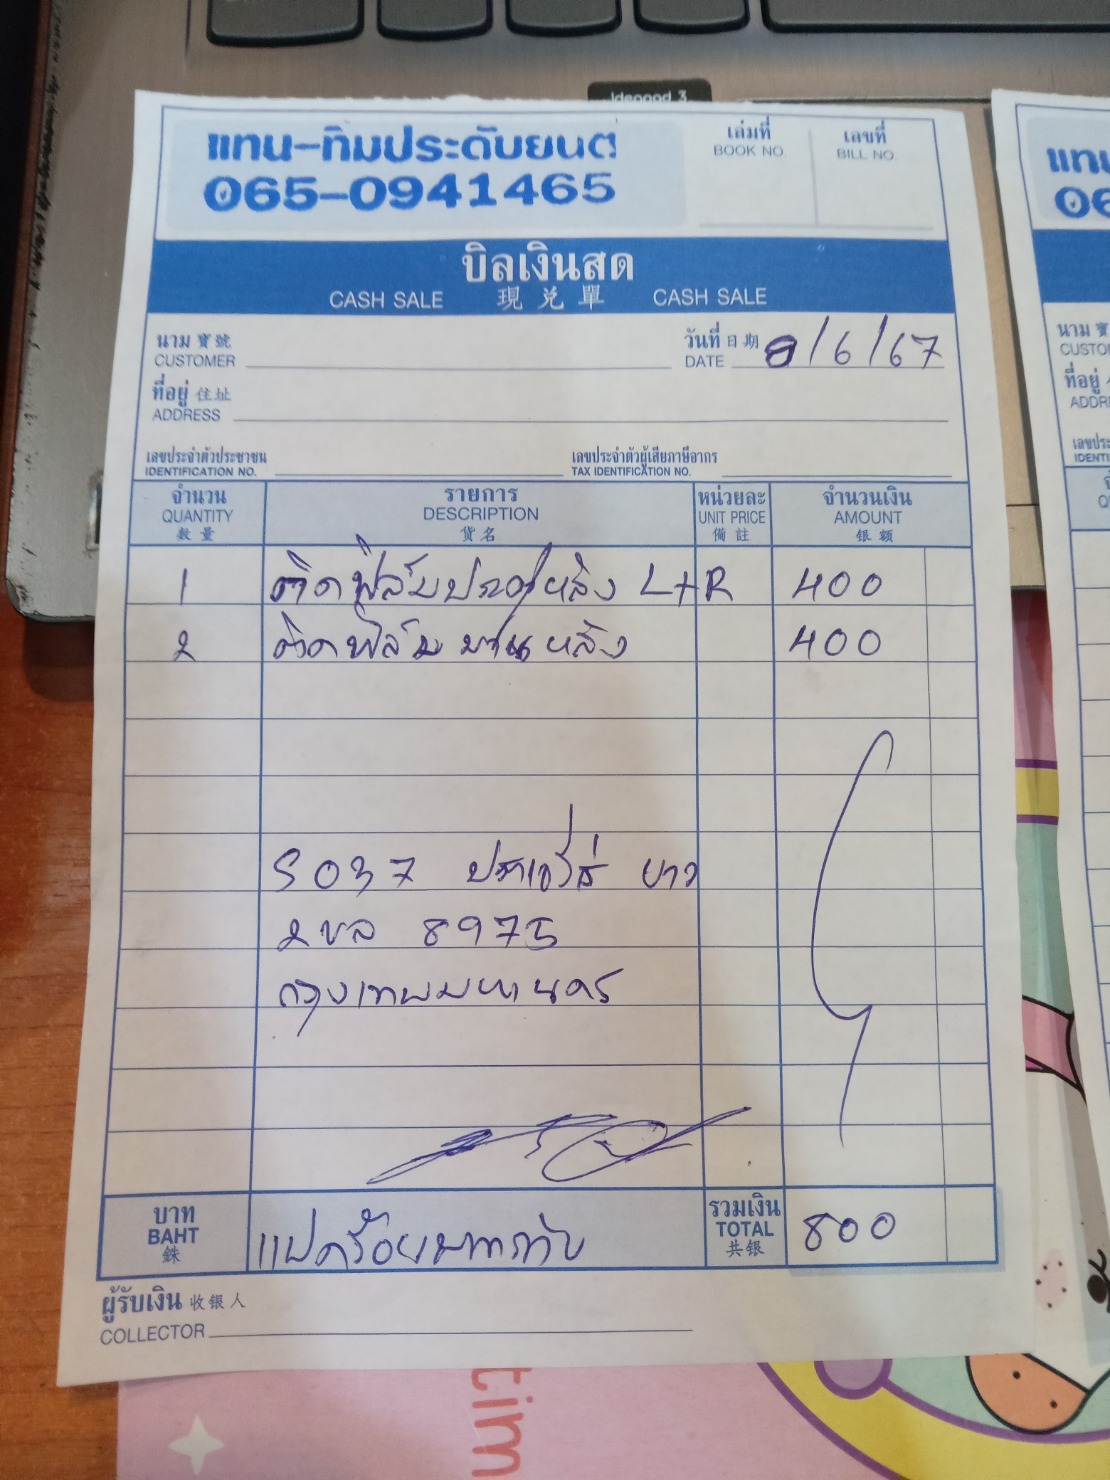 Ideapad 3
แทน-ทิมประดับยนต์
065-0941465
เล่มที่
BOOK NO.
เลขที่
BILL NO.
บิลเงินสด
CASH SALE 現兑單 CASH SALE
นาม 寶號
CUSTOMER
วันที่ 日期
DATE 8/6/67
ที่อยู่ 住址
ADDRESS
เลขประจำตัวประชาชน
IDENTIFICATION NO.
เลขประจำตัวผู้เสียภาษีอากร
TAX IDENTIFICATION NO.
จำนวน รายการ หน่วยละ จำนวนเงิน
QUANTITY DESCRIPTION UNIT PRICE AMOUNT
數量 貨名 備註 银额
1 ติดฟิล์มประตูหลัง L+R 400
2 ติดฟิล์มบานหลัง 400
S037 ขาว
2ขล 8975
กรุงเทพมหานคร
บาท
BAHT
銖
แปดร้อยบาท
รวมเงิน
TOTAL
共银
800
ผู้รับเงิน 收银人
COLLECTOR
tim